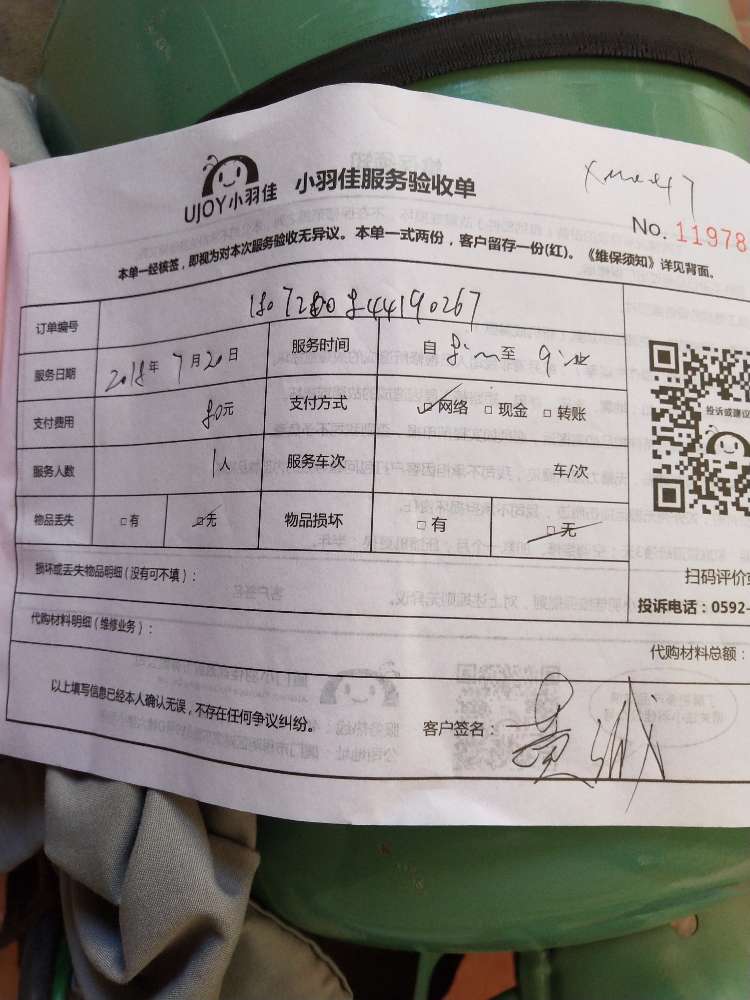 UJOY小羽佳 小羽佳服务验收单
No. 11978
本单一经核签，即视为对本次服务验收无异议。本单一式两份，客户留存一份(红)。《维保须知》详见背面。
订单编号
服务日期 2018年 7月20日 服务时间 自 至
支付费用 80元 支付方式 ☑网络 □现金 □转账
服务人数 1人 服务车次 车/次
物品丢失 □有 ☑无 物品损坏 □有 ☑无
投诉或建议
损坏或丢失物品明细(没有可不填)：
扫码评价
投诉电话：0592-
代购材料明细(维修业务)：
代购材料总额：
以上填写信息已经本人确认无误，不存在任何争议纠纷。
客户签名：